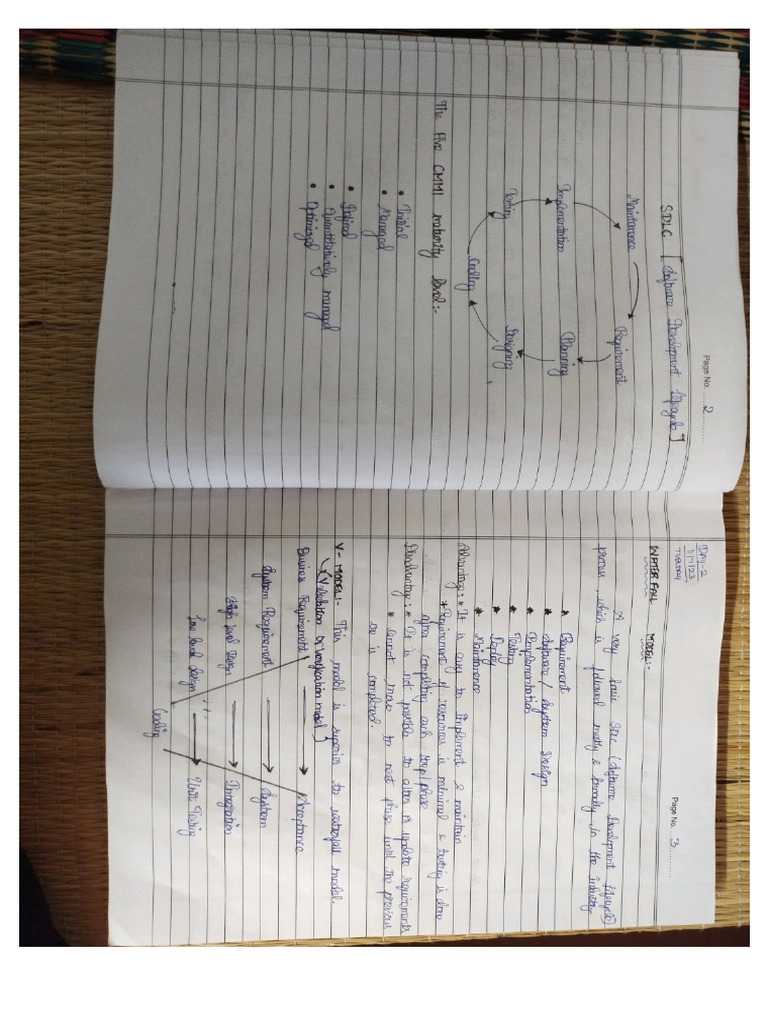 Page No. 2
SDLC [Software Development Lifecycle]
Maintenance
Requirement
Implementation
Planning
Testing
Designing
Coding
The five CMMI maturity level :-
• Initial
• Managed
• Defined
• Quantitatively managed
• Optimized
Page No. 3
DAY-2
TUESDAY
WATER FALL MODEL :-
A very basic SDLC (Software Development Lifecycle)
process, which is followed mostly & formally in the industry
* Requirement
* Software / System Design
* Implementation
* Testing
* Deploy
* Maintenance
Advantage : * It is easy to implement & maintain
* Requirement of resources is minimal & testing is done
after completing each step/phase
Disadvantage : * It is not possible to alter or update requirements
* Cannot move to next phase until the previous
is completed.
V-MODEL :- This model is superior to waterfall model.
(Validation or Verification model)
Business Requirement
Acceptance
System Requirement
System
High level Design
Integration
low level design
Unit Testing
Coding